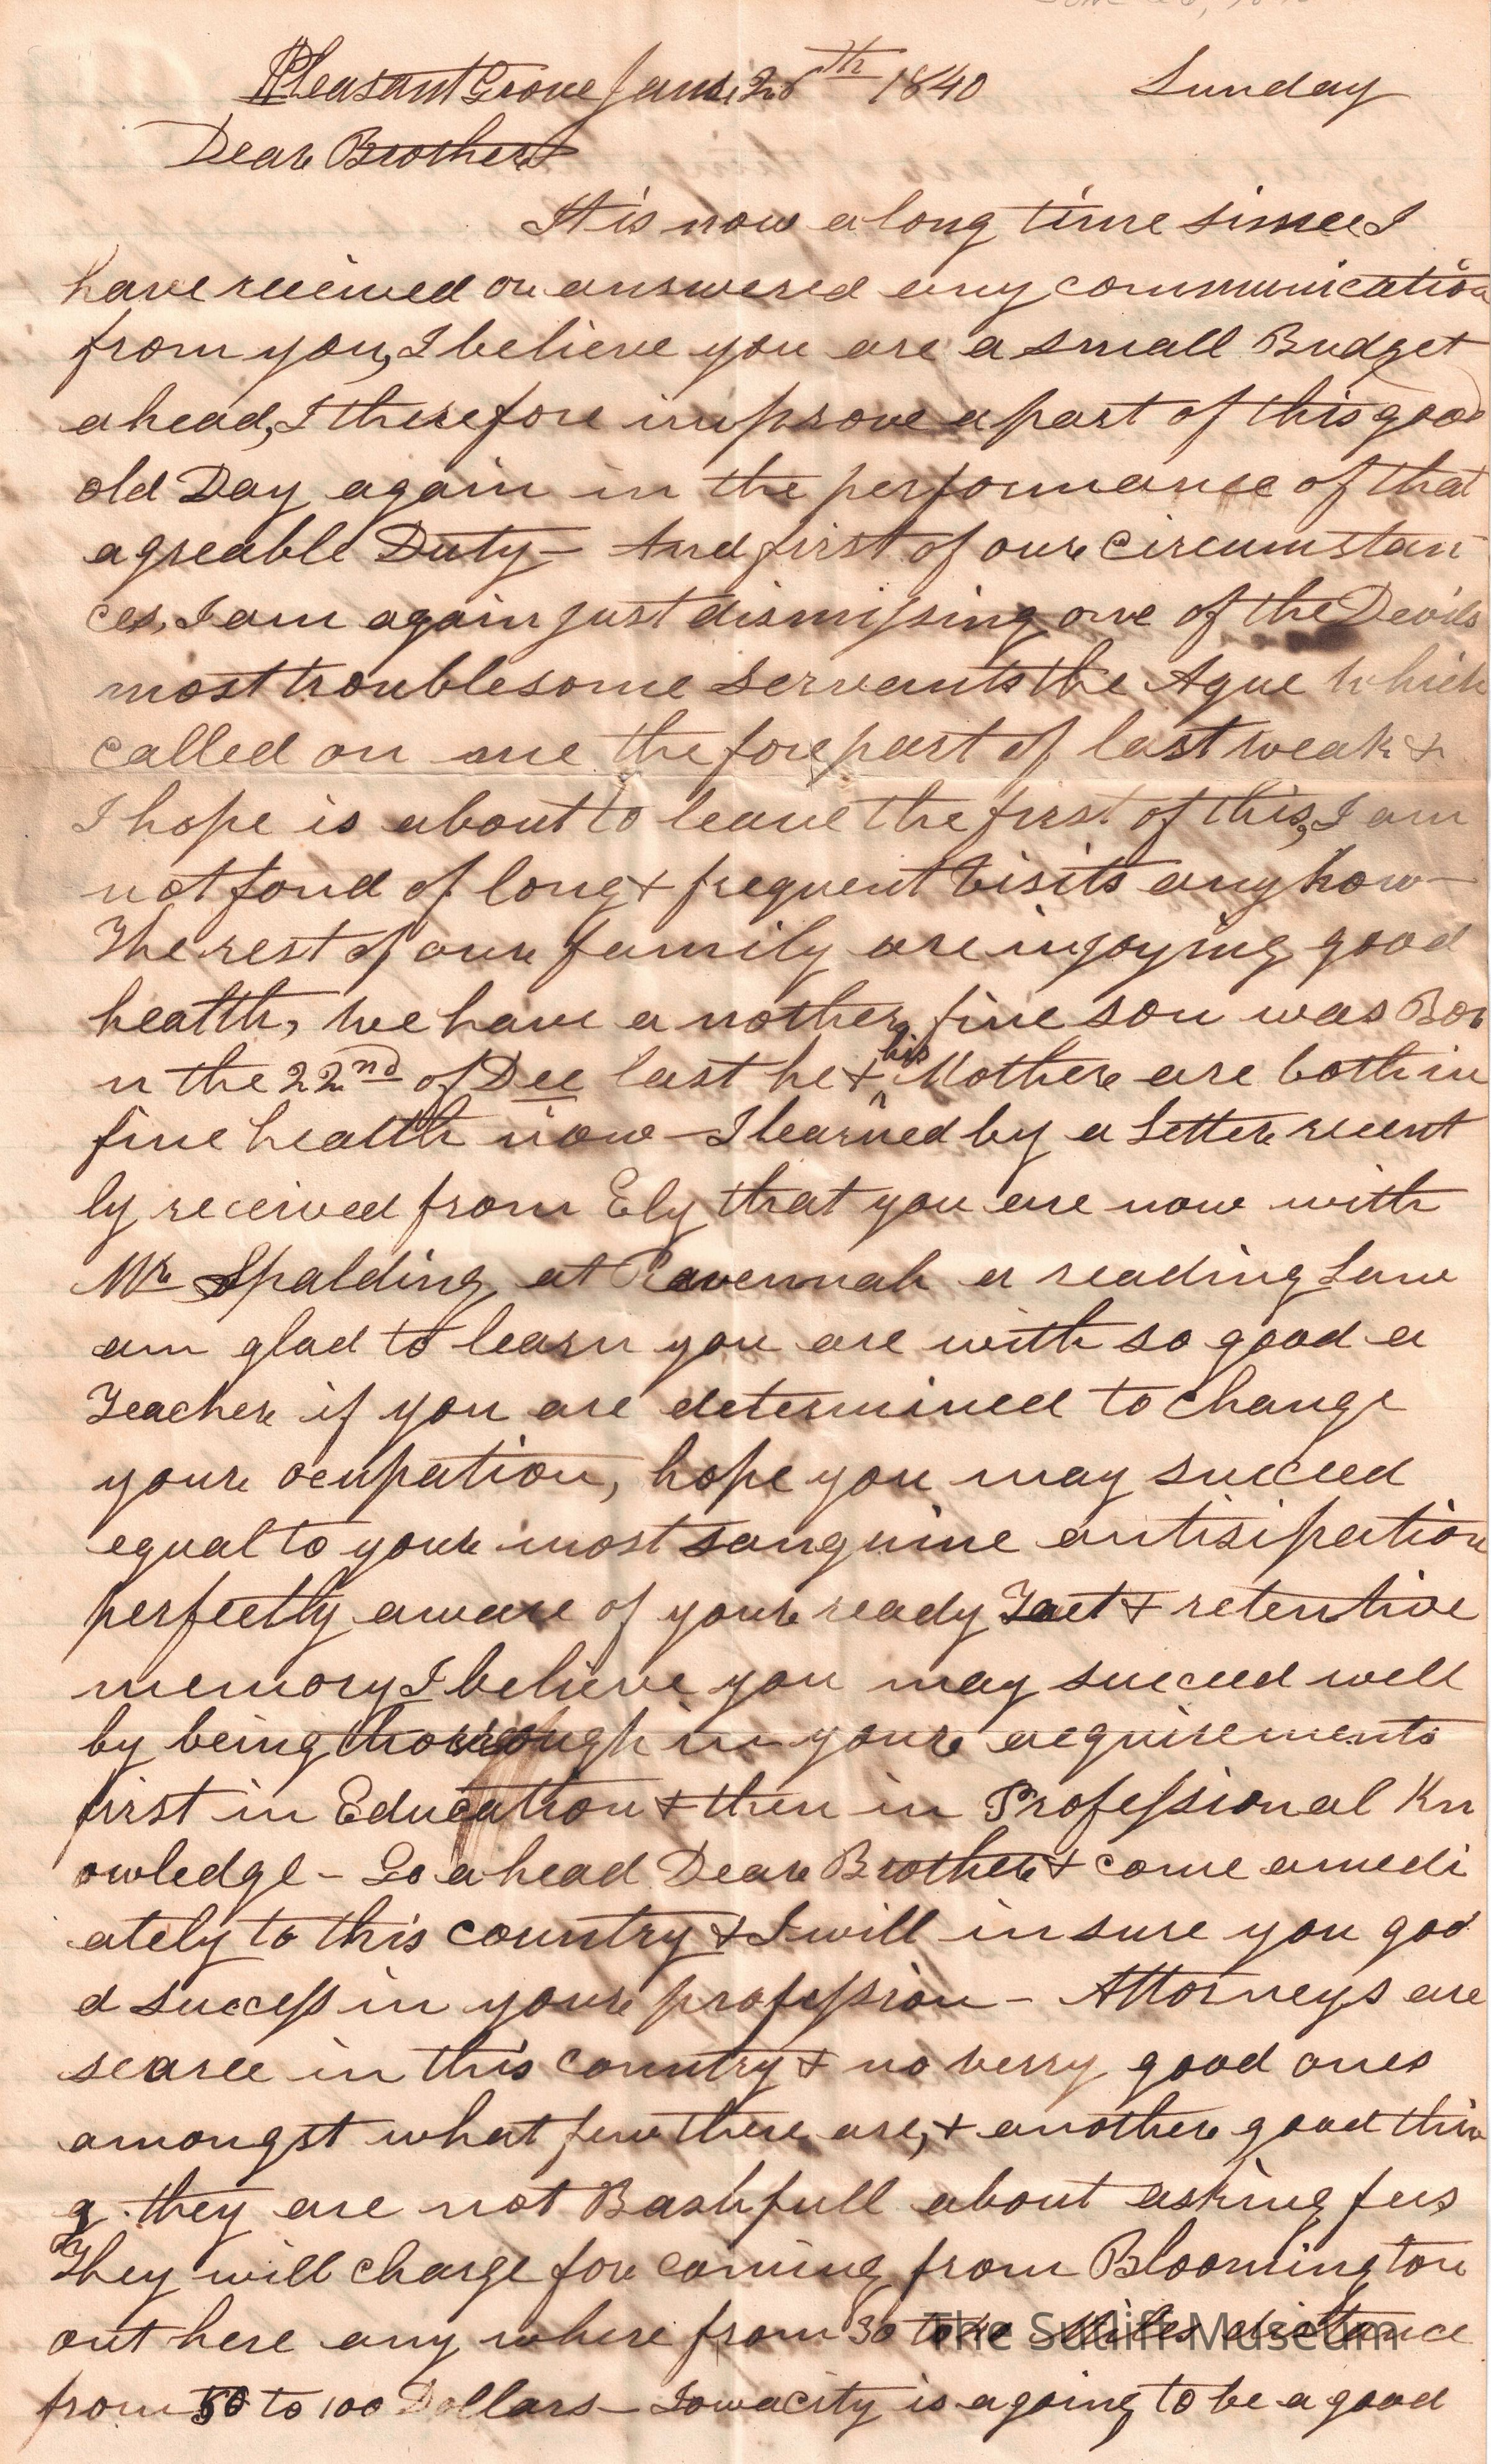 Pleasant Grove Jan. 26th 1840 Sunday
Dear Brother
It is now a long time since I
have received or answered any communication
from you, I believe you are a small Budget
ahead, I therefore improve a part of this good
old Day again in the performance of that
agreable Duty – And first of our circumstan
ces, I am again just dismissing one of the Devils
most troublesome servants the Ague which
called on me the forepart of last weak &
I hope is about to leave the first of this, I am
not fond of long & frequent Visits any how –
The rest of our family are injoying good
health, We have another fine son was Bor
n the 22nd of Dec last he & his Mother are both in
fine health now – I learned by a Letter recent
ly received from Ely that you are now with
Mr Spalding at Ravennah a reading Law
am glad to learn you are with so good a
Teacher if you are determined to change
your ocupation, hope you may succeed
equal to your most sanguine antisipation
perfectly aware of your ready Tact & retentive
memory I believe you may succeed well
by being through in your aequirements
first in Education & then in Professional Kn
owledge – Go ahead Dear Brother & come amedi
ately to this country & I will insure you goo
d success in your profession – Attorneys are
scarce in this Country & no verry good ones
amongst what few there are, & another good thin
g. they are not Bashfull about asking fees
They will charge for coming from Bloomington
out here any where from 30 to Miles distance
from 50 to 100 Dollars – Iowa city is a going to be a good
The Sutliff Museum